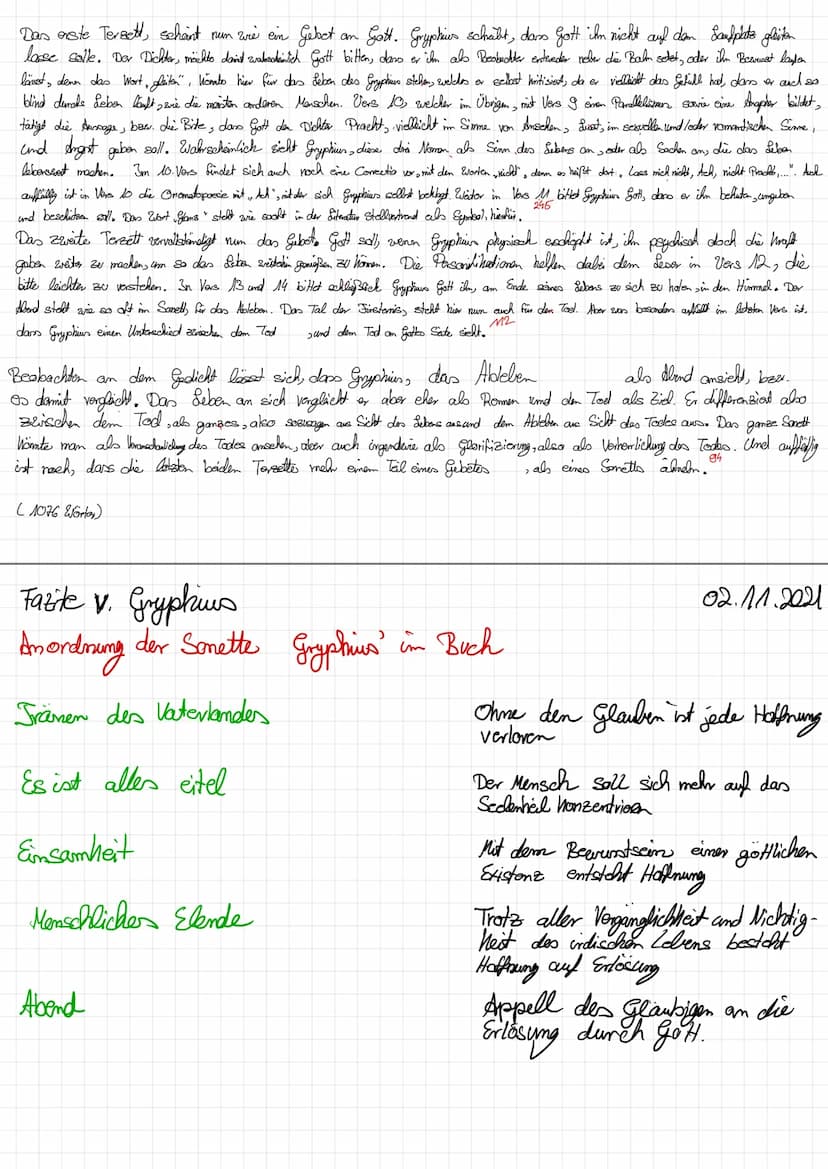 Das erste Terzett, scheint nun wie ein Gebet an Gott. Gryphius schreibt, dass Gott ihn nicht auf dem Laufplatz gleiten
lasse solle. Der Dichter, möchte damit wahrscheinlich Gott bitten, dass er ihn als Beobachter entweder neben die Bahn setzt, oder ihn Bewusst laufen
lässt, denn das Wort „gleiten“, könnte hier für das Leben des Gryphius stehen, welches er selbst kritisiert, da er vielleicht das Gefühl hat, dass er auch so
blind durchs Leben läuft, wie die meisten anderen Menschen. Vers 10, welcher im Übrigen, mit Vers 9 einen Parallelismus sowie eine Anapher bildet,
tätigt die Aussage, bzw. die Bitte, dass Gott dem Dichter Pracht, vielleicht im Sinne von Ansehen, Lust, im sexuellen und/oder romantischen Sinne,
und Angst geben soll. Wahrscheinlich sieht Gryphius, diese drei Nomen als Sinn des Lebens an, oder als Sachen an, die das Leben
lebenswert machen. Im 10. Vers findet sich auch noch eine Correctio vor, mit den Worten „nicht“, denn es heißt dort „Lass mich nicht, Ach, nicht Pracht,...“. Auch
auffällig ist in Vers 10 die Onomatopoesie mit „Ach“, mit der sich Gryphius selbst beklagt. Weiter in Vers 11 bittet Gryphius Gott, dass er ihn behüten, umgeben
und beschützen soll. Das Wort „Glanz“ steht wie sooft in der Literatur Stellvertretend als Symbol, hierfür.
245
Das zweite Terzett vervollständigt nun das Gebet. Gott soll, wenn Gryphius physisch erschöpft ist, ihn psychisch doch die Kraft
geben weiter zu machen, um so das Leben weiterhin genießen zu können. Die Personifikationen helfen dabei dem Leser in Vers 12, die
bitte leichter zu verstehen. In Vers 13 und 14 bittet schließlich Gryphius Gott ihn, am Ende seines Lebens zu sich zu holen, in den Himmel. Der
Abend steht wie so oft im Sonett, für das Ableben. Das Tal der Finsternis, steht hier nun auch für den Tod. Aber was besonders auffällt im letzten Vers ist,
112
dass Gryphius einen Unterschied zwischen dem Tod , und dem Tod an Gottes Seite sieht.
Beobachten an dem Gedicht lässt sich, dass Gryphius, das Ableben als Abend ansieht, bzw.
es damit vergleicht. Das Leben an sich vergleicht er aber eher als Rennen und den Tod als Ziel. Er differenziert also
zwischen dem Tod, als ganzes, also sozusagen aus Sicht des Lebens aus und dem Ableben aus Sicht des Todes aus. Das ganze Sonett
könnte man als Veranschaulichung des Todes ansehen, aber auch irgendwie als Glorifizierung, also als Verherrlichung des Todes. Und auffällig
94
ist noch, dass die letzten beiden Terzette mehr einem Teil eines Gebetes , als eines Sonetts ähneln.
(1076 Wörter)
Fazite v. Gryphius 02.11.2021
Anordnung der Sonette Gryphius' im Buch
Tränen des Vaterlandes Ohne den Glauben ist jede Hoffnung
verloren
Es ist alles eitel Der Mensch soll sich mehr auf das
Seelenheil konzentrieren
Einsamheit Mit dem Bewusstsein einer göttlichen
Existenz entsteht Hoffnung
Menschliches Elende Trotz aller Vergänglichkeit und Nichtig-
keit des irdischen Lebens besteht
Hoffnung auf Erlösung
Abend Appell des Gläubigen an die
Erlösung durch Gott.